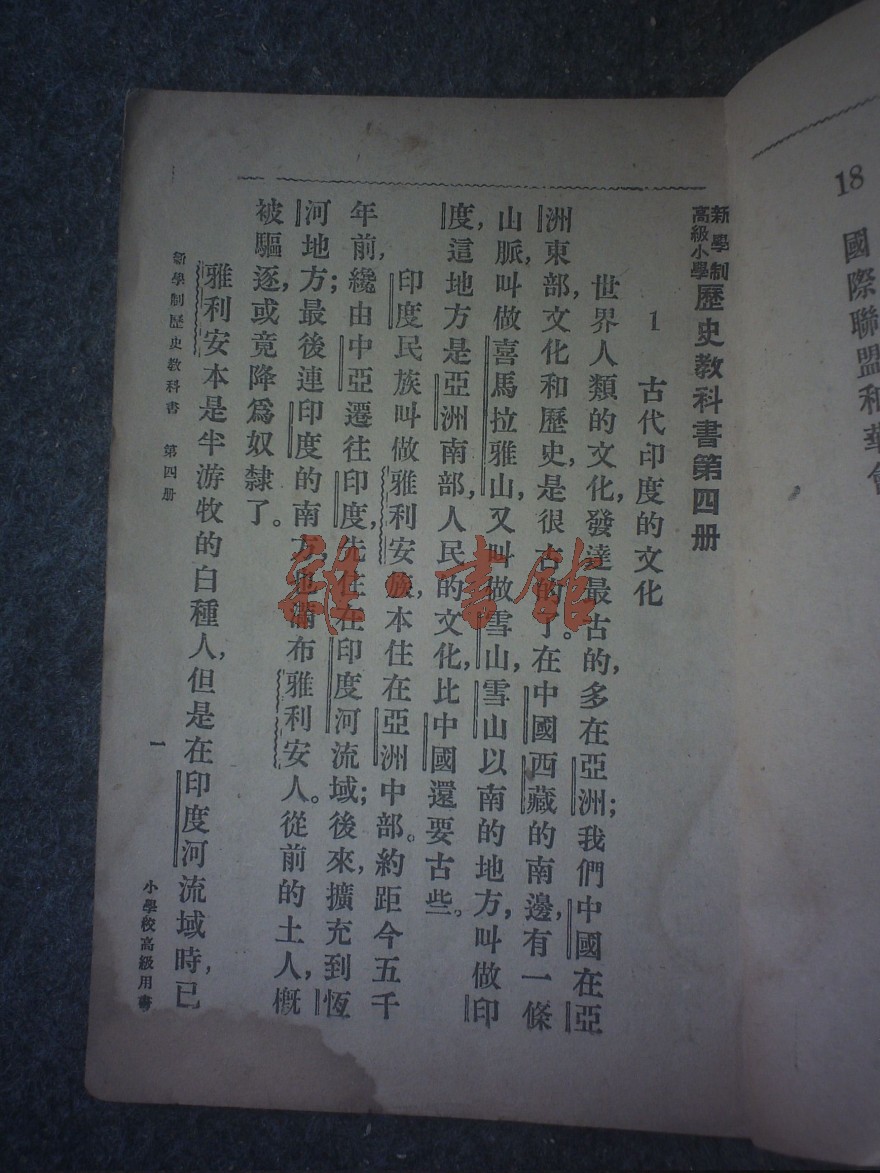 18 國際聯盟和華會
新學制
高級小學
歷史教科書第四册
1 古代印度的文化
世界人類的文化,發達最古的,多在亞洲;我們中國在亞
洲東部,文化和歷史,是很古的了。在中國西藏的南邊,有一條
山脈,叫做喜馬拉雅山,又叫做雪山,雪山以南的地方,叫做印
度,這地方是亞洲南部,人民的文化,比中國還要古些。
印度民族叫做雅利安族,本住在亞洲中部。約距今五千
年前,纔由中亞遷往印度,先住在印度河流域;後來,擴充到恆
河地方;最後連印度的南方,也滿布雅利安人。從前的土人,概
被驅逐,或竟降爲奴隸了。
雅利安本是半游牧的白種人,但是在印度河流域時,已
新學制歷史教科書 第四册 一 小學校高級用書
雜·書館